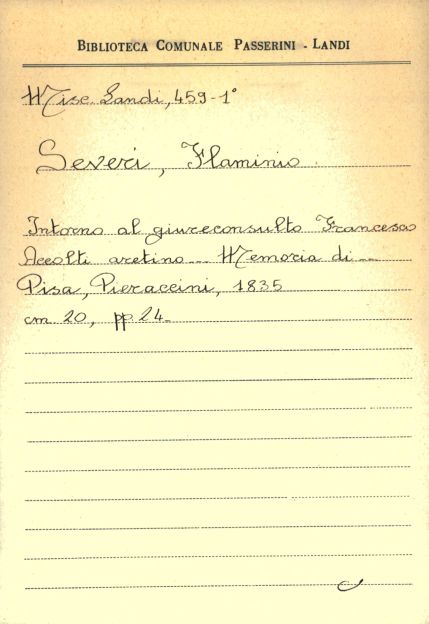 BIBLIOTECA COMUNALE PASSERINI - LANDI
Misc. Landi, 459-1°
Severi, Flaminio
Intorno al giureconsulto Francesco
Accolti aretino... Memoria di...
Pisa, Pieraccini, 1835
cm 20, pp 24.